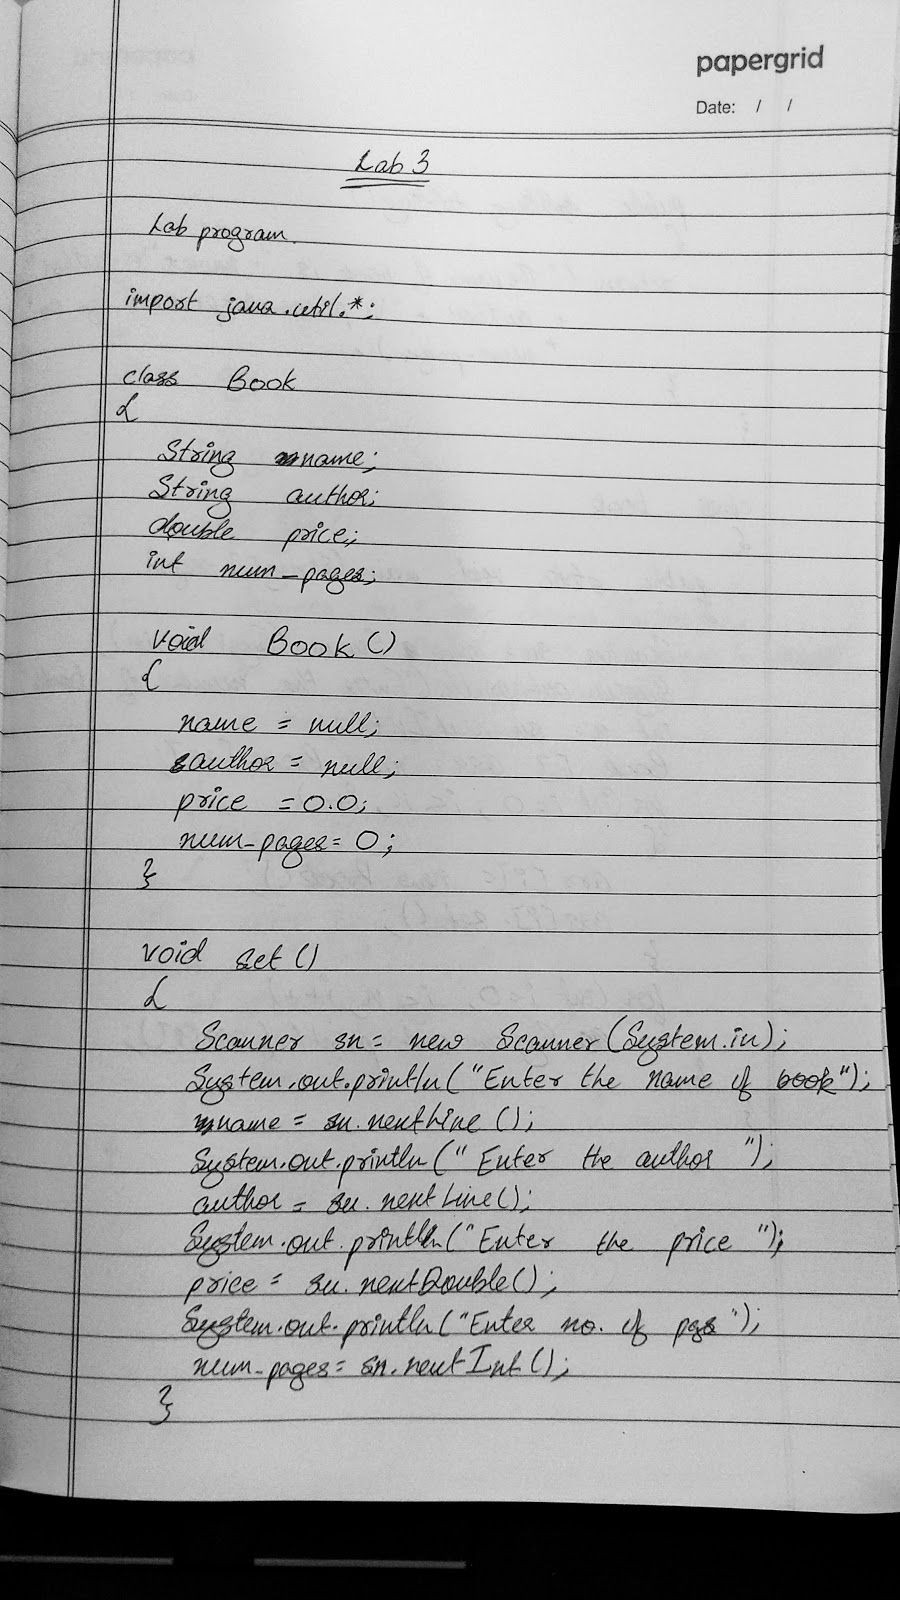 papergrid
Date: / /
Lab 3
Lab program.
import java.util.*;
class Book
{
String name;
String author;
double price;
int num_pages;
void Book()
{
name = null;
author = null;
price = 0.0;
num_pages = 0;
}
void set()
{
Scanner sn = new Scanner(System.in);
System.out.println("Enter the name of book");
name = sn.nextLine();
System.out.println("Enter the author ");
author = sn.nextLine();
System.out.println("Enter the price ");
price = sn.nextDouble();
System.out.println("Enter no. of pgs");
num_pages = sn.nextInt();
}